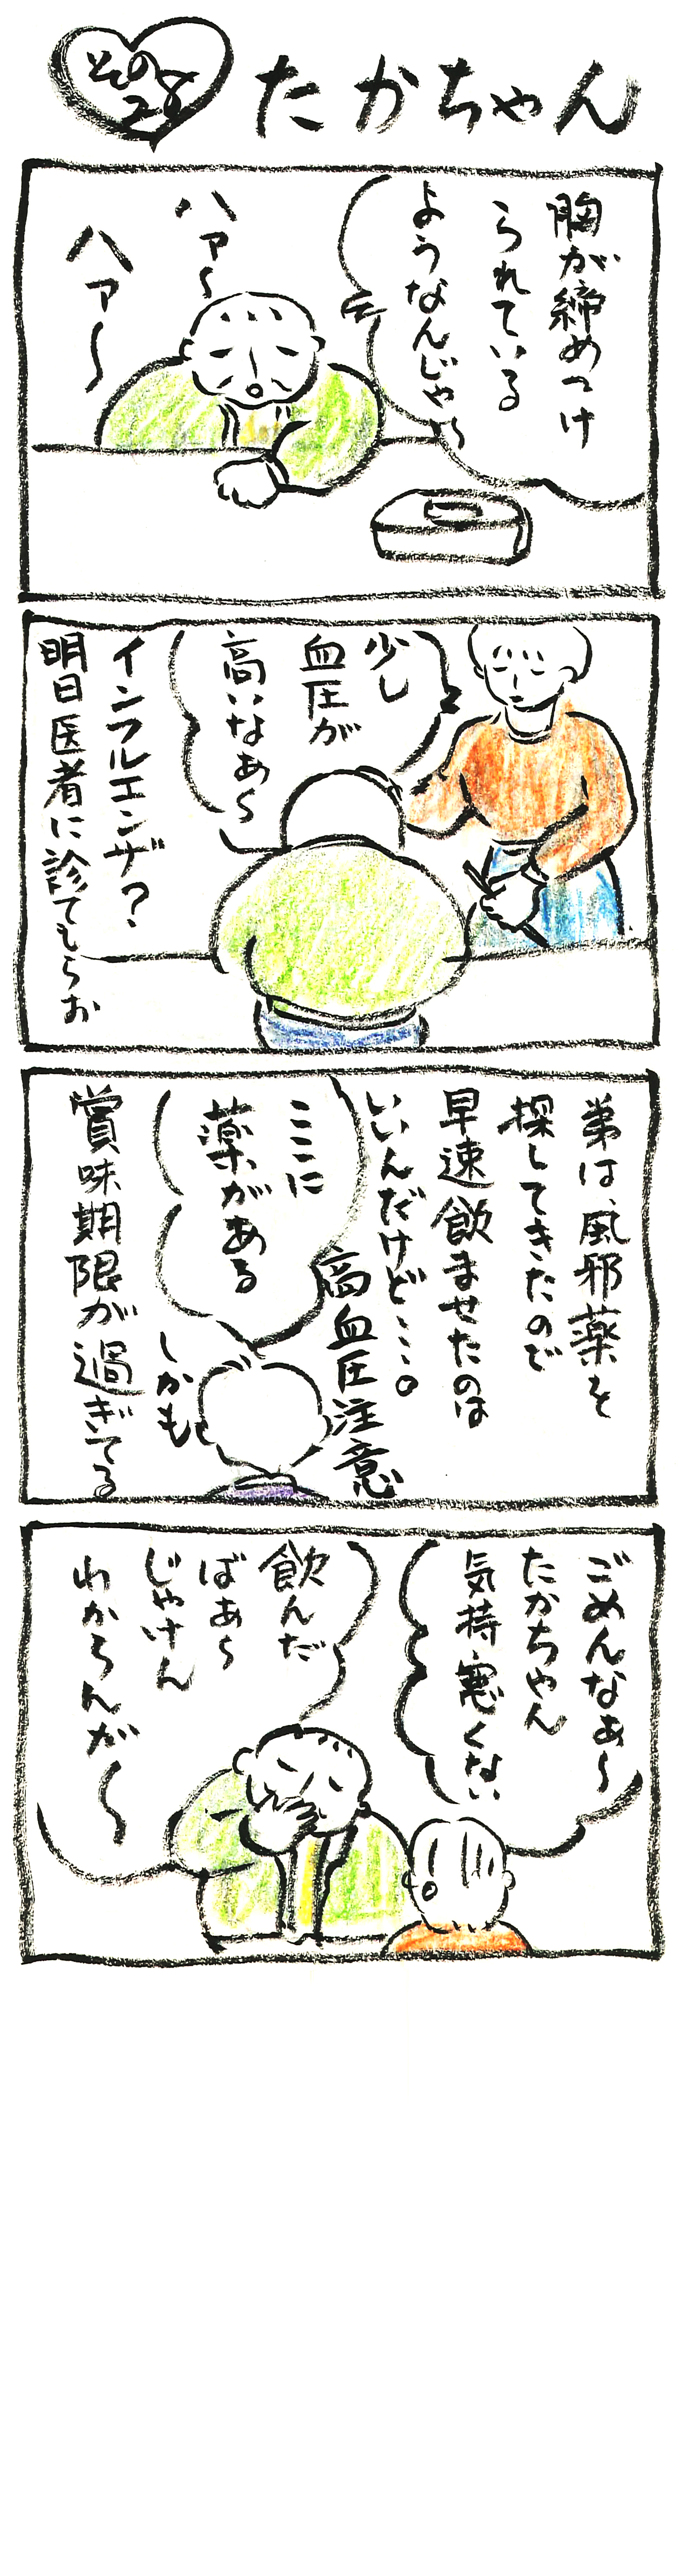 その
28
たかちゃん
胸が締めつけ
られている
ようなんじゃ
ハァ〜
ハァ〜
少し
血圧が
高いなぁ〜
インフルエンザ?
明日医者に診てもらお
弟は、風邪薬を
探してきたので
早速飲ませたのは
いいんだけど…。
高血圧注意
ここに
薬がある
しかも
賞味期限が過ぎてる
ごめんなぁ〜
たかちゃん
気持悪くない
飲んだ
ばぁ〜
じゃけん
わからんが〜